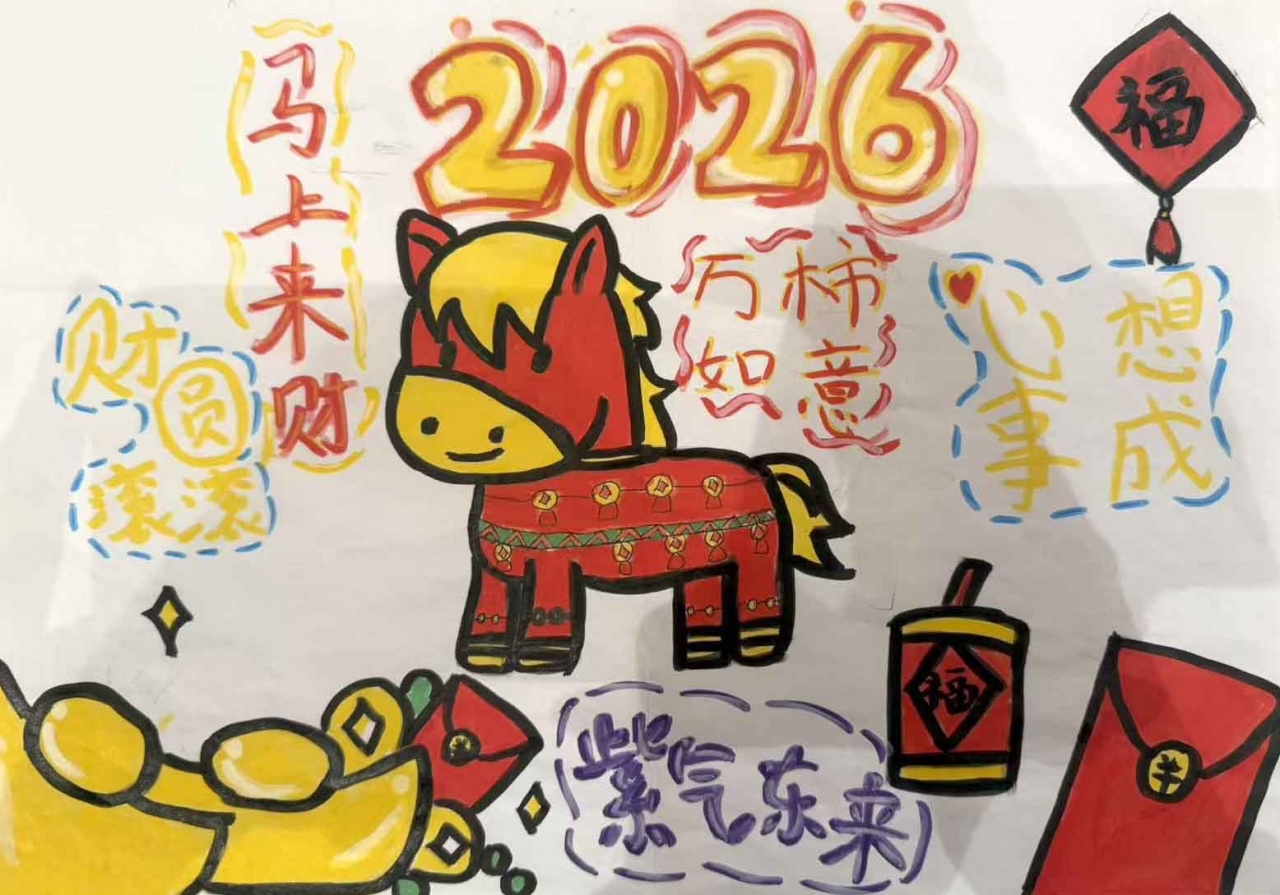 2026
马上来财
福
万柿
如意
心想
事成
财
圆
滚滚
福
紫气东来